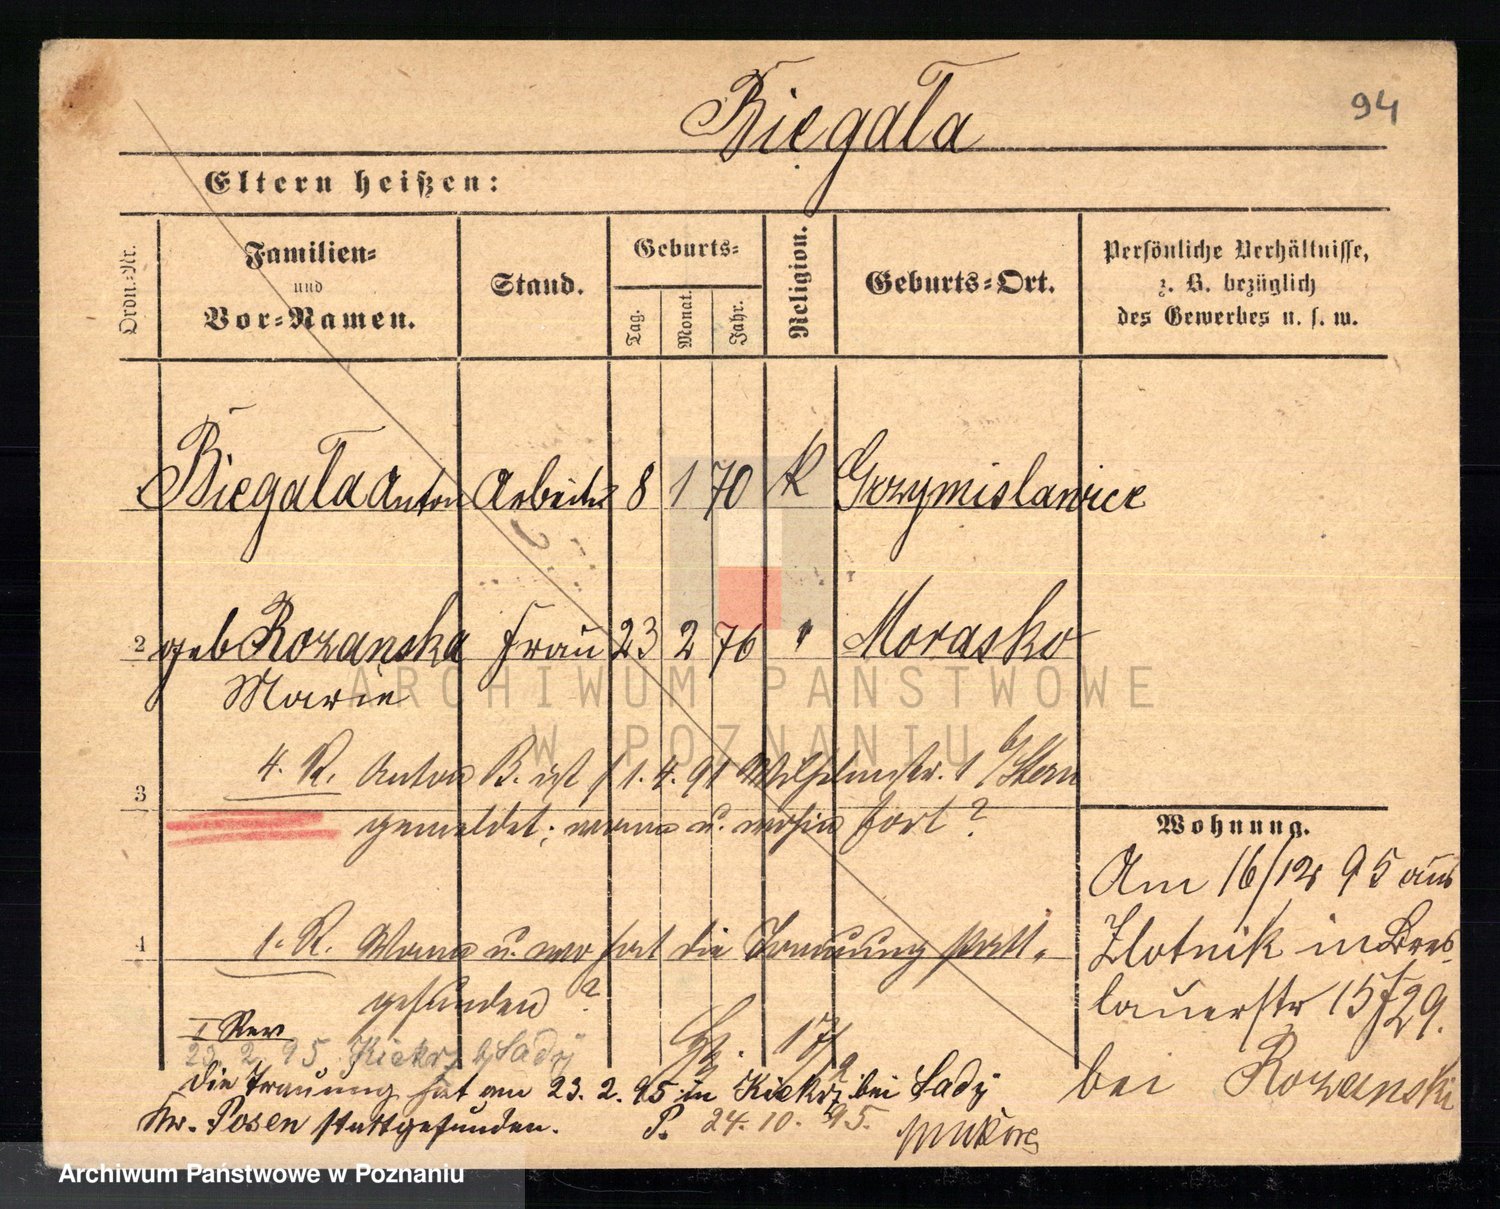 94
Biegała
Eltern heißen:
Ordn.-Nr.
Familien-
und
Vor-Namen.
Stand.
Geburts-
Tag.
Monat.
Jahr.
Religion.
Geburts-Ort.
Persönliche Verhältnisse,
z. B. bezüglich
des Gewerbes u. s. w.
Biegała Anton Arbeiter 8 1 70 K Grzymislawice
2 geb Rozanska Frau 23 2 76 " Morasko
Marie
ARCHIWUM PAŃSTWOWE
W POZNANIU
4. R. Anton B. ist 1.4.91 Wilhelmstr. 1 b/Stern
3
gemeldet; wann u. wohin fort?
Wohnung.
Am 16/12 95 aus
Zlotnik in Bres-
lauerstr 15/29.
bei Rozanski
4 1. R. Wann u. wo hat die Trauung statt-
gefunden?
I Rev
23 2 95 Kiekrz b/Sady
17/9
Die Trauung hat am 23.2.95 in Kiekrz bei Sady
Kr. Posen stattgefunden. P. 24.10.95.
Archiwum Państwowe w Poznaniu